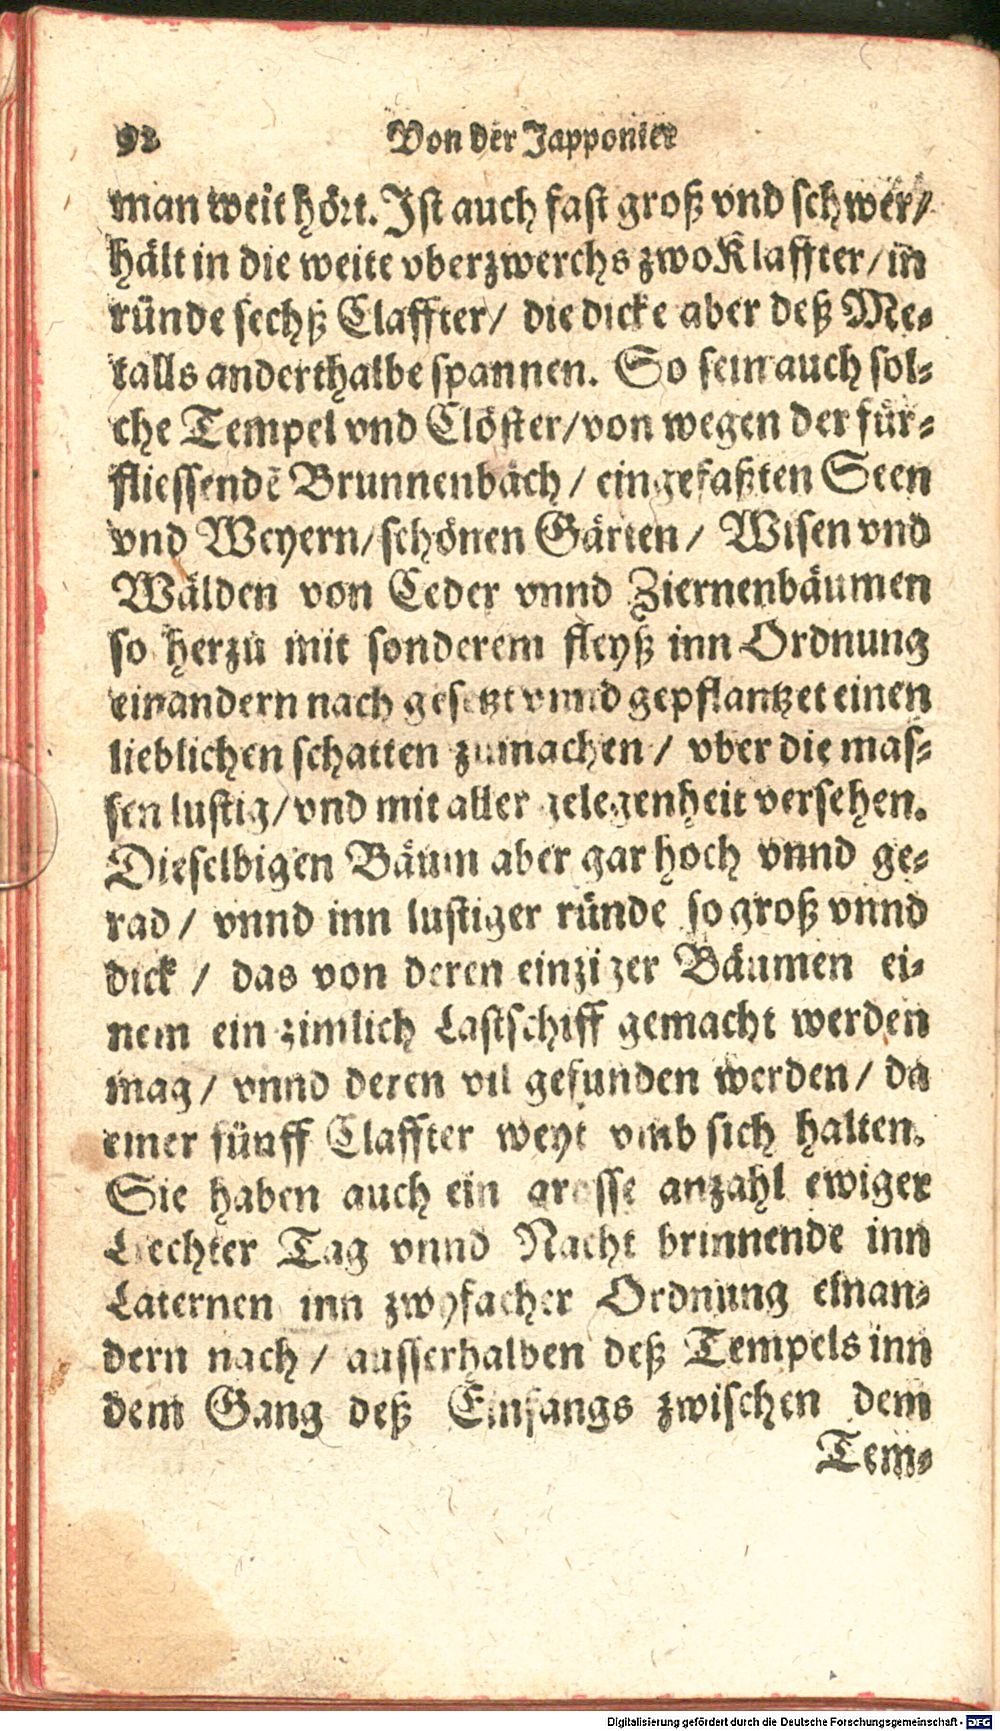 92 Von der Japponier
man weit hört. Ist auch fast groß vnd schwer/
hält in die weite vberzwerchs zwo Klaffter/ in
ründe sechß Claffter/ die dicke aber deß Me-
talls anderthalbe spannen. So sein auch sol-
che Tempel vnd Clöster/ von wegen der für-
fliessendē Brunnenbäch/ eingefaßten Seen
vnd Weyern/ schönen Gärten/ Wisen vnd
Wälden von Ceder vnnd Ziernenbäumen
so herzu mit sonderem fleyß inn Ordnung
einandern nach gesetzt vnnd gepflantzet einen
lieblichen schatten zumachen/ vber die mas-
sen lustig/ vnd mit aller gelegenheit versehen.
Dieselbigen Bäum aber gar hoch vnnd ge-
rad/ vnnd inn lustiger ründe so groß vnnd
dick/ das von deren einziger Bäumen ei-
nem ein zimlich Lastschiff gemacht werden
mag/ vnnd deren vil gefunden werden/ da
einer fünff Claffter weyt vmb sich halten.
Sie haben auch ein grosse anzahl ewiger
Liechter Tag vnnd Nacht brinnende inn
Laternen inn zwyfacher Ordnung einan-
dern nach/ ausserhalben deß Tempels inn
dem Gang deß Einfangs zwischen dem
Tem-
Digitalisierung gefördert durch die Deutsche Forschungsgemeinschaft - DFG